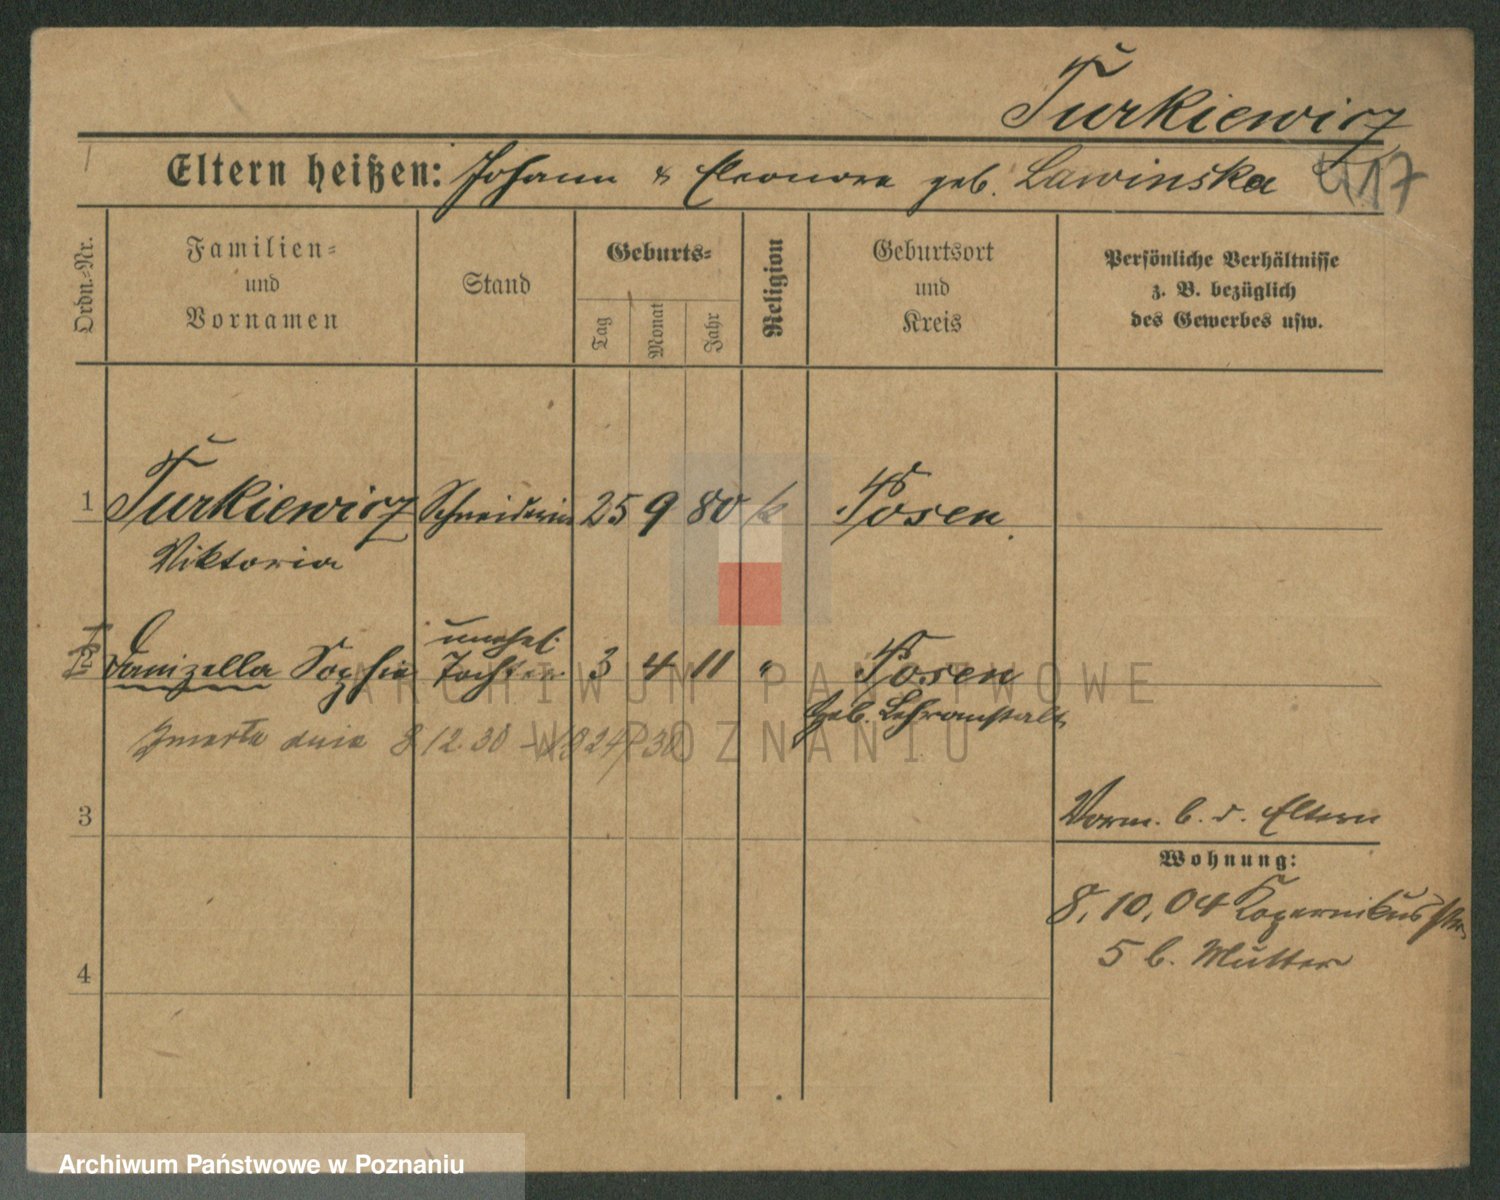 Turkiewicz
Eltern heißen: Johann & Eleonore geb. Lawinska
417
Ordn.-Nr.
Familien- und Vornamen
Stand
Geburts-
Tag
Monat
Jahr
Religion
Geburtsort und Kreis
Persönliche Verhältnisse
z. B. bezüglich
des Gewerbes usw.
1 Turkiewicz Schneiderin 25 9 80 k Posen
Viktoria
unehel.
2 Sophie Tochter 3 4 11 " Posen
Geb. Lehranstalt
Zmarła dnia 8 12.30
ARCHIWUM PAŃSTWOWE
W POZNANIU
3
Vorm. b. d. Eltern
Wohnung:
8.10.04 Kopernikusstr.
5 b. Mutter
4
Archiwum Państwowe w Poznaniu